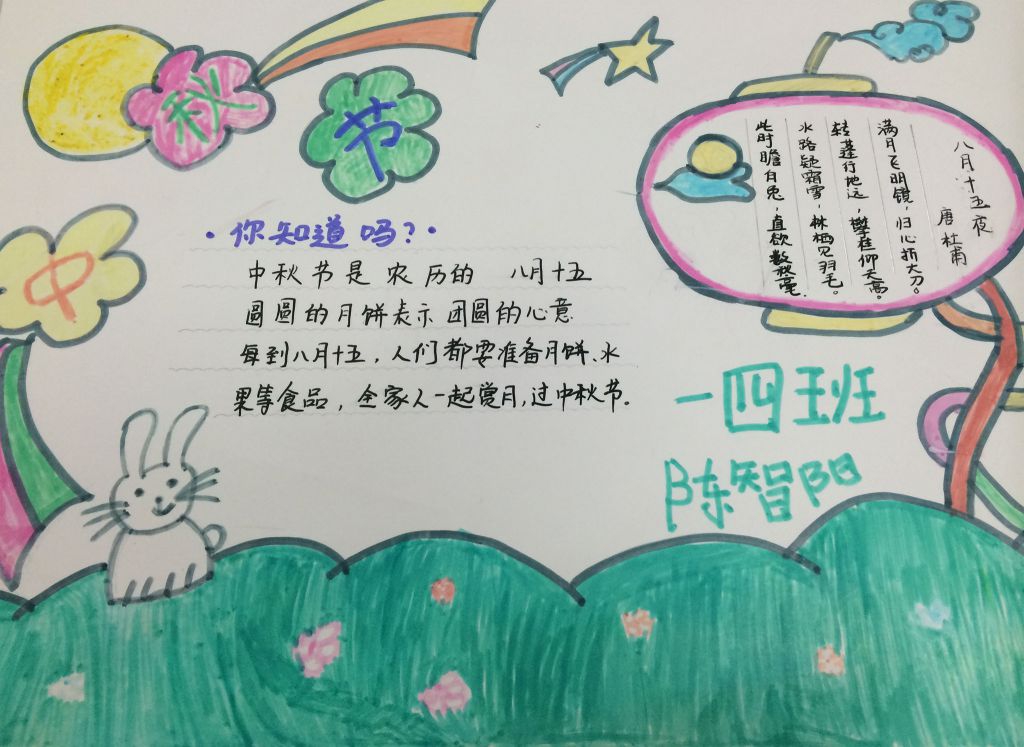 中
秋
节
·你知道吗？·
中秋节是农历的 八月十五
圆圆的月饼表示团圆的心意
每到八月十五，人们都要准备月饼、水
果等食品，全家人一起赏月，过中秋节。
八月十五夜
唐 杜甫
满月飞明镜，归心折大刀。
转蓬行地远，攀桂仰天高。
水路疑霜雪，林栖见羽毛。
此时瞻白兔，直欲数秋毫。
一四班
陈智阳